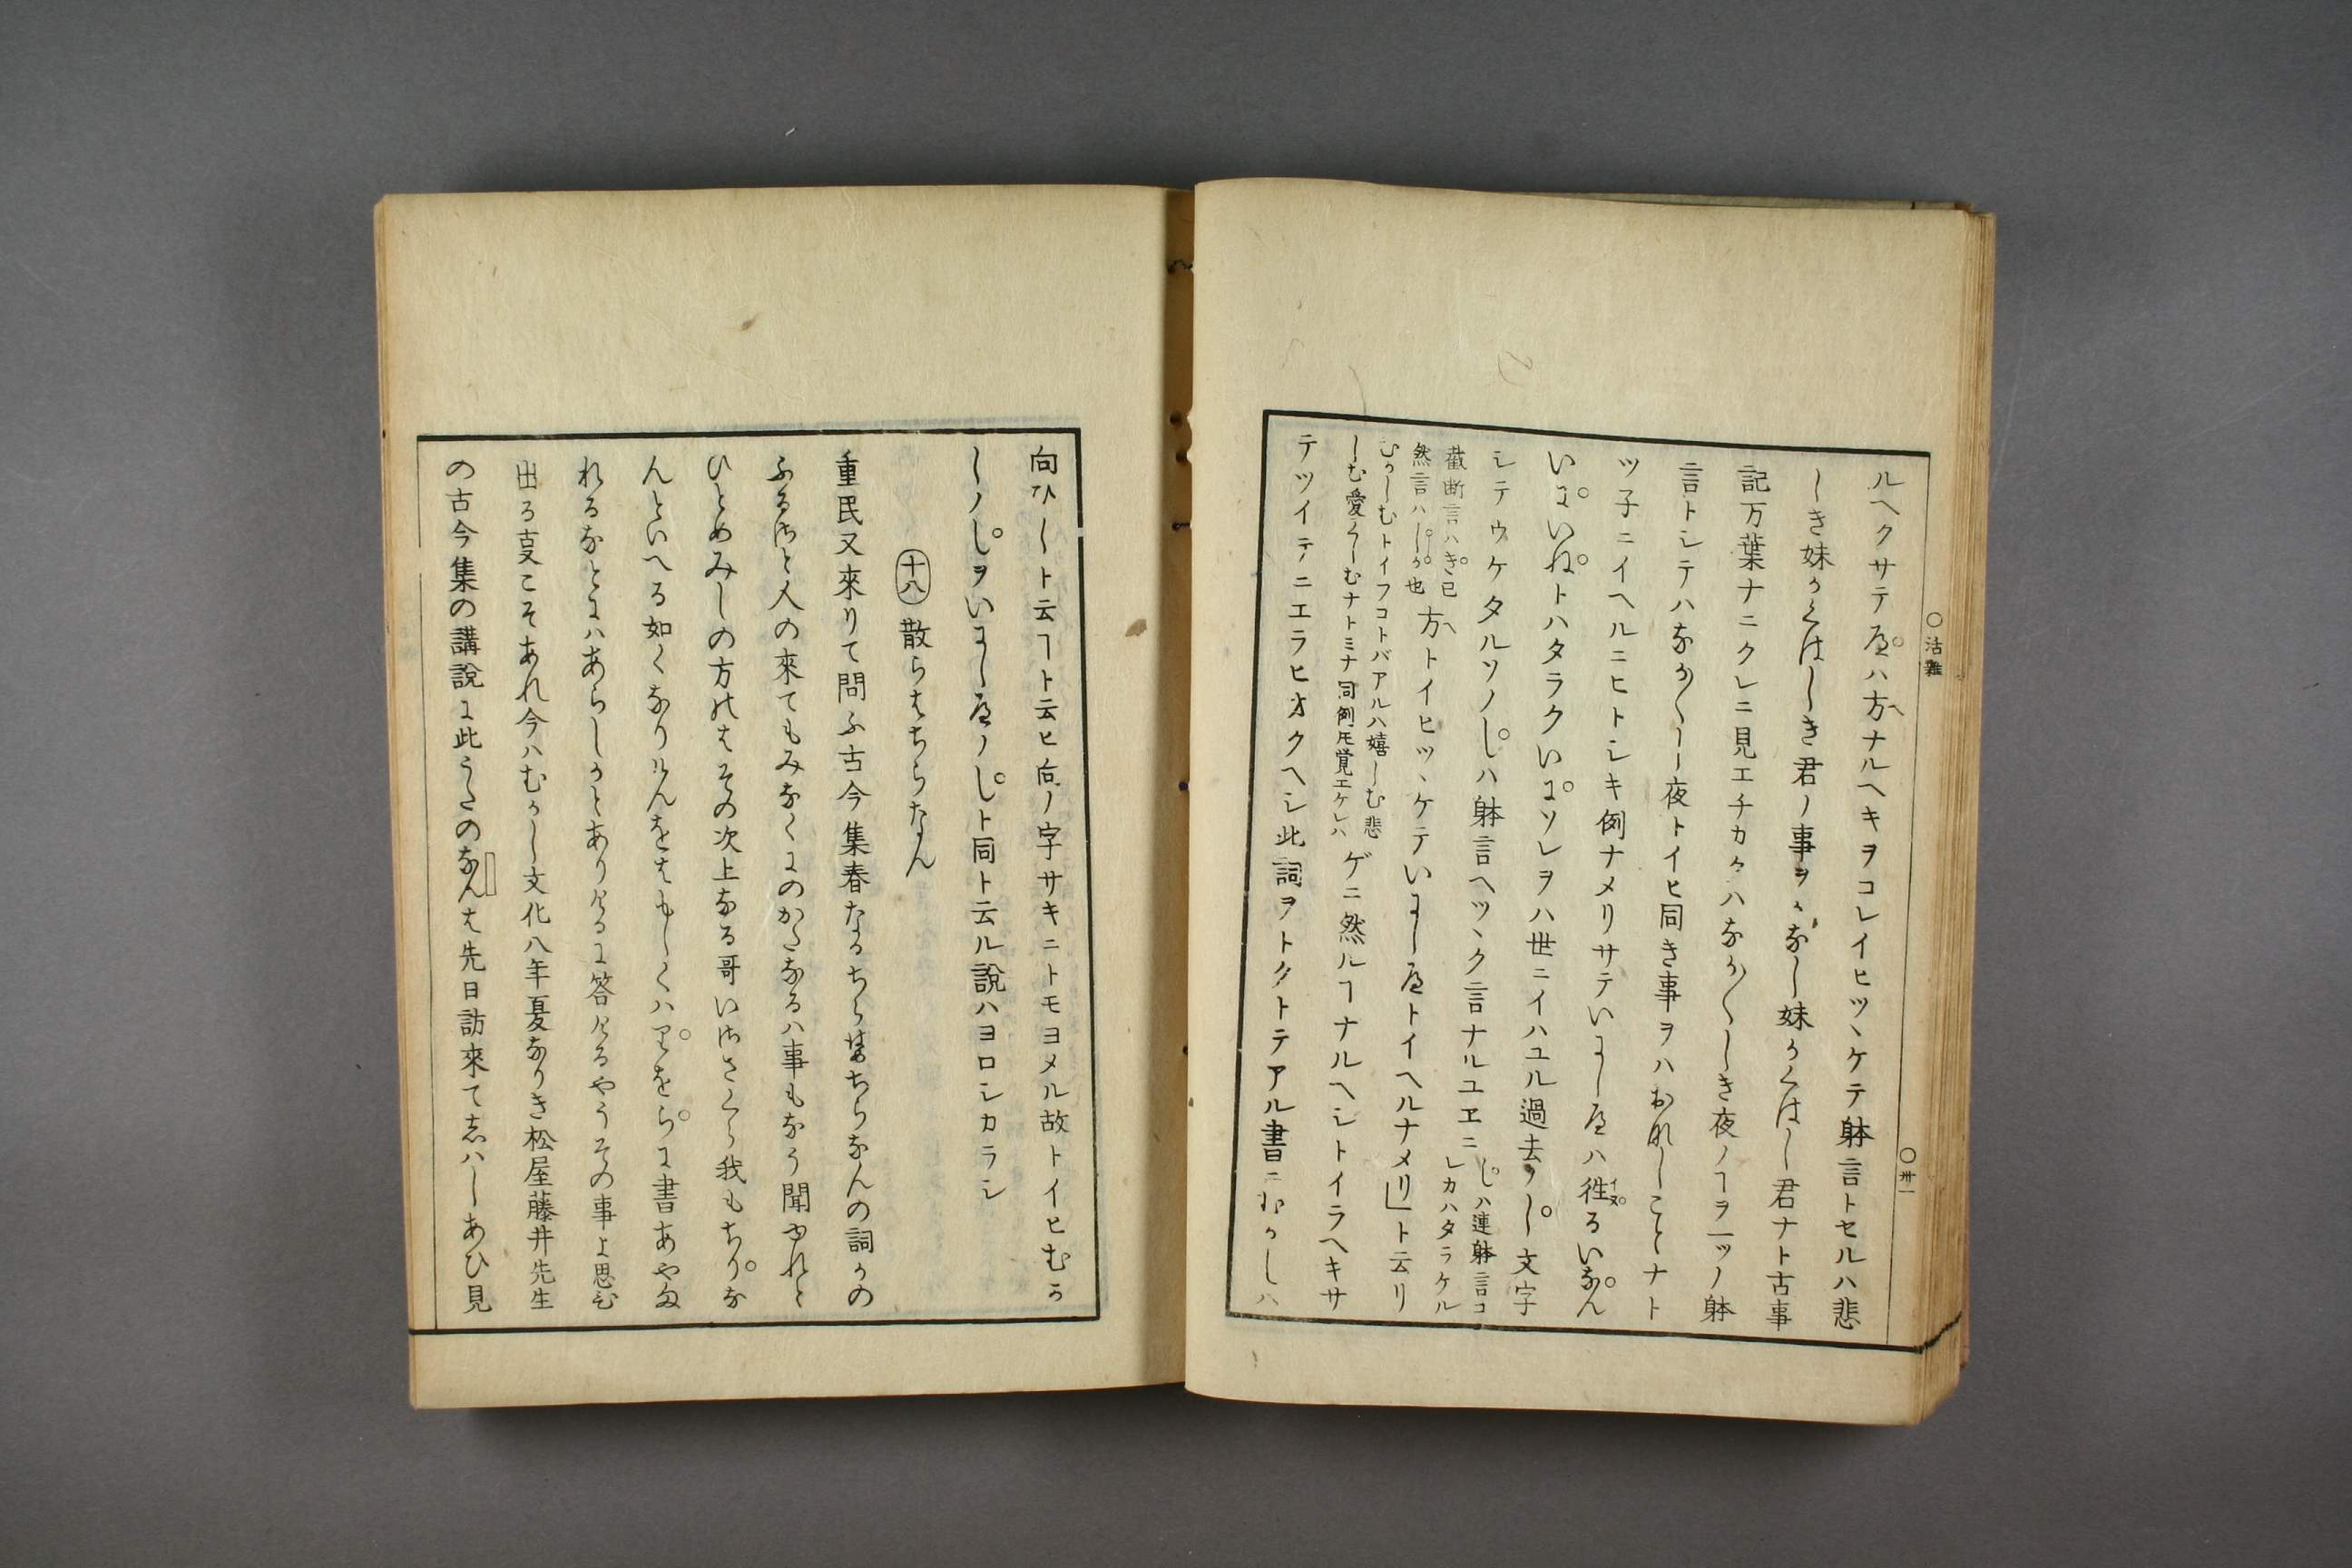 ○活雜
○卅一
ルヘクサテ𛀁ハ方ヘナルヘキヲコレイヒツヽケテ躰言トセルハ悲
しき妹かくはしき君ノ事ヲ かなし妹かくはし君ナト古事
記万葉ナニクレニ見エチカクハながながしき夜ノヿヲ一ツノ躰
言トシテハながながし夜トイヒ同き事ヲハおなしことナト
ツ子ニイヘルニヒトシキ例ナメリサテいにし𛀁ハ徃るいなん
いにいねトハタラクいにソレヲハ世ニイハユル過去ノし文字
シテウケタルソノしハ躰言ヘツヽク言ナルユヱニ しハ連躰言コレカハタラケル
截断言ハき已然言ハしか也 方ヘトイヒツヽケテいにし𛀁トイヘルナメリ」ト云リ
むかしむトイフコトバアルハ嬉しむ悲
しむ愛くしむナトミナ同例 覚エケレハ ゲニ然ルヿナルヘシトイラヘキサ
テツイテニエラヒオクヘシ此詞ヲトクトテアル書ニむかしハ
向ひしト云ヿト云ヒ向ノ字サキニトモヨメル故トイヒむか
しノしヲいにし𛀁ノしト同ト云ル説ハヨロシカラシ
十八 散らはちらなん
重民又來りて問ふ古今集春なるちらはちらなんの詞かの
ふるさと人の來てもみなくにのかたなるハ事もなう聞ゆれと
ひとめみしの方のはその次上なる哥いささくら我もちりな
んといへる如くなりけんをはもしくハりをらに書あやま
れるなとにハあらしかとありけるに答けるやうその事よ思ひ
出る事こそあれ今ハむかし文化八年夏なりき松屋藤井先生
の古今集の講説に此うたのなんは先日訪來て志ハしあひ見